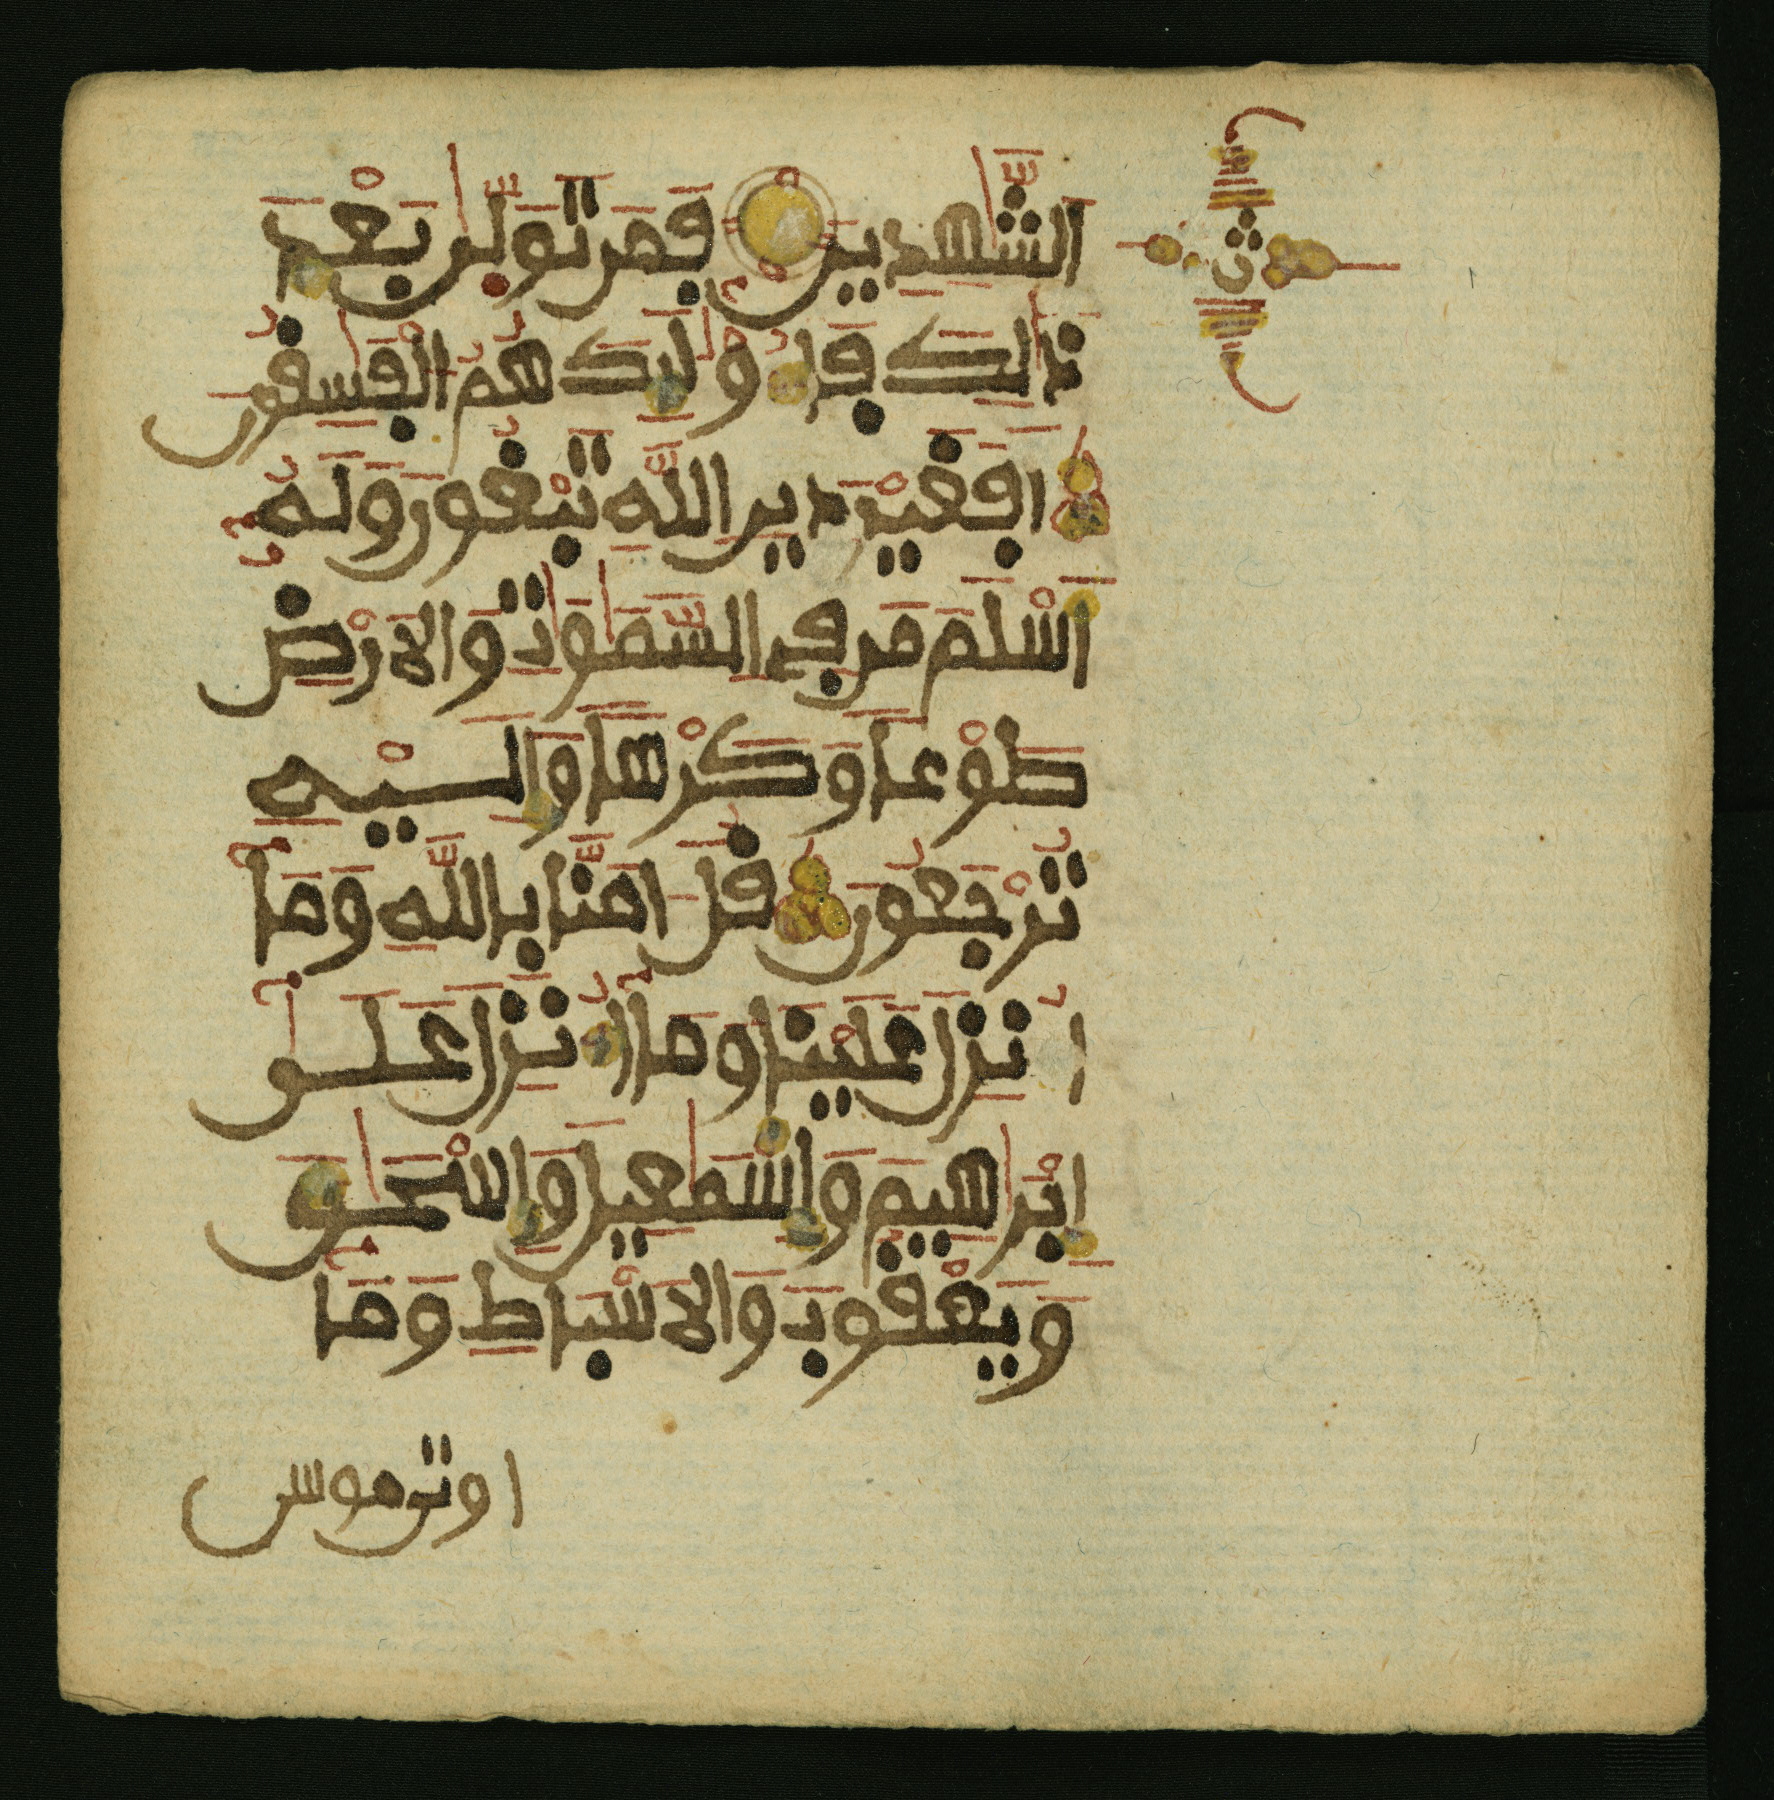 الشَّٰهِدِينَ فَمَن تَوَلَّىٰ بَعْدَ
ذَٰلِكَ فَأُوْلَٰئِكَ هُمُ الْفَٰسِقُونَ
أَفَغَيْرَ دِينِ اللَّهِ تَبْغُونَ وَلَهُۥ
أَسْلَمَ مَن فِي السَّمَٰوَٰتِ وَالَارْضِ
طَوْعاً وَكَرْهاً وَإِلَيْهِ
تُرْجَعُونَ قُلَ امَنَّا بِاللَّهِ وَمَا
أُنزِلَ عَلَيْنَا وَمَا أُنزِلَ عَلَىٰ
إِبْرَٰهِيمَ وَإِسْمَٰعِيلَ وَإِسْحَٰقَ
وَيَعْقُوبَ وَالَاسْبَاطِ وَمَا
اوتى موسى